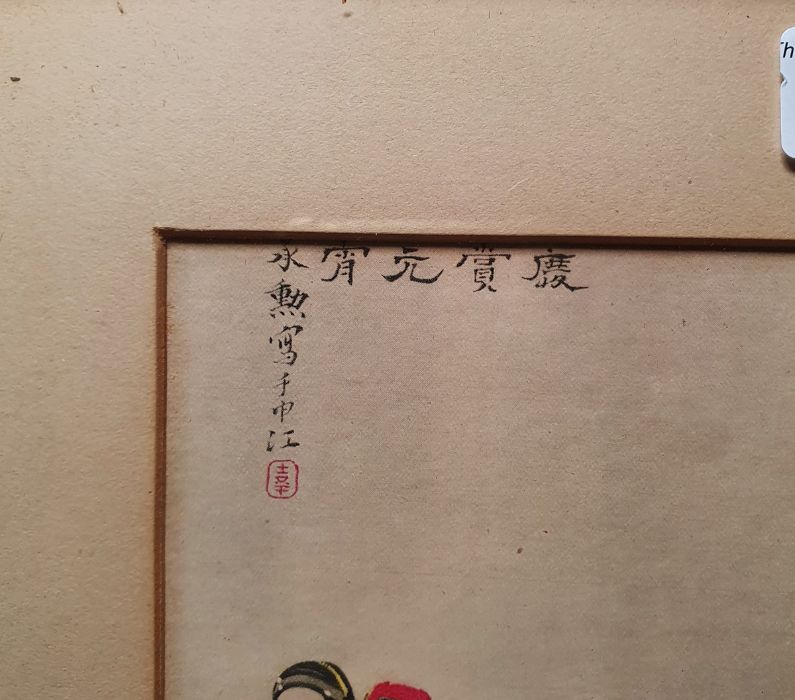 慶賞元宵
永勳寫于申江
Th